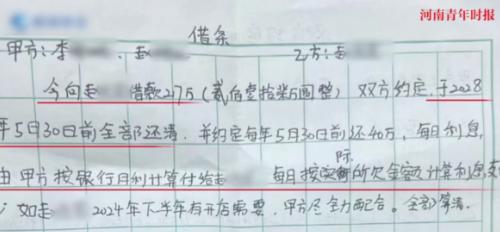 河南青年时报
借条
甲方:李 赵 乙方:赵
今向赵 借款217万(贰佰壹拾柒万圆整) 双方约定,于2028
年5月30日前全部还清,并约定每年5月30日前还40万,每月利息,
由甲方按银行月利计算付给赵 每月按实际所欠金额计算利息支
如赵 2024年下半年有开店需要,甲方尽全力配合。全部算清。